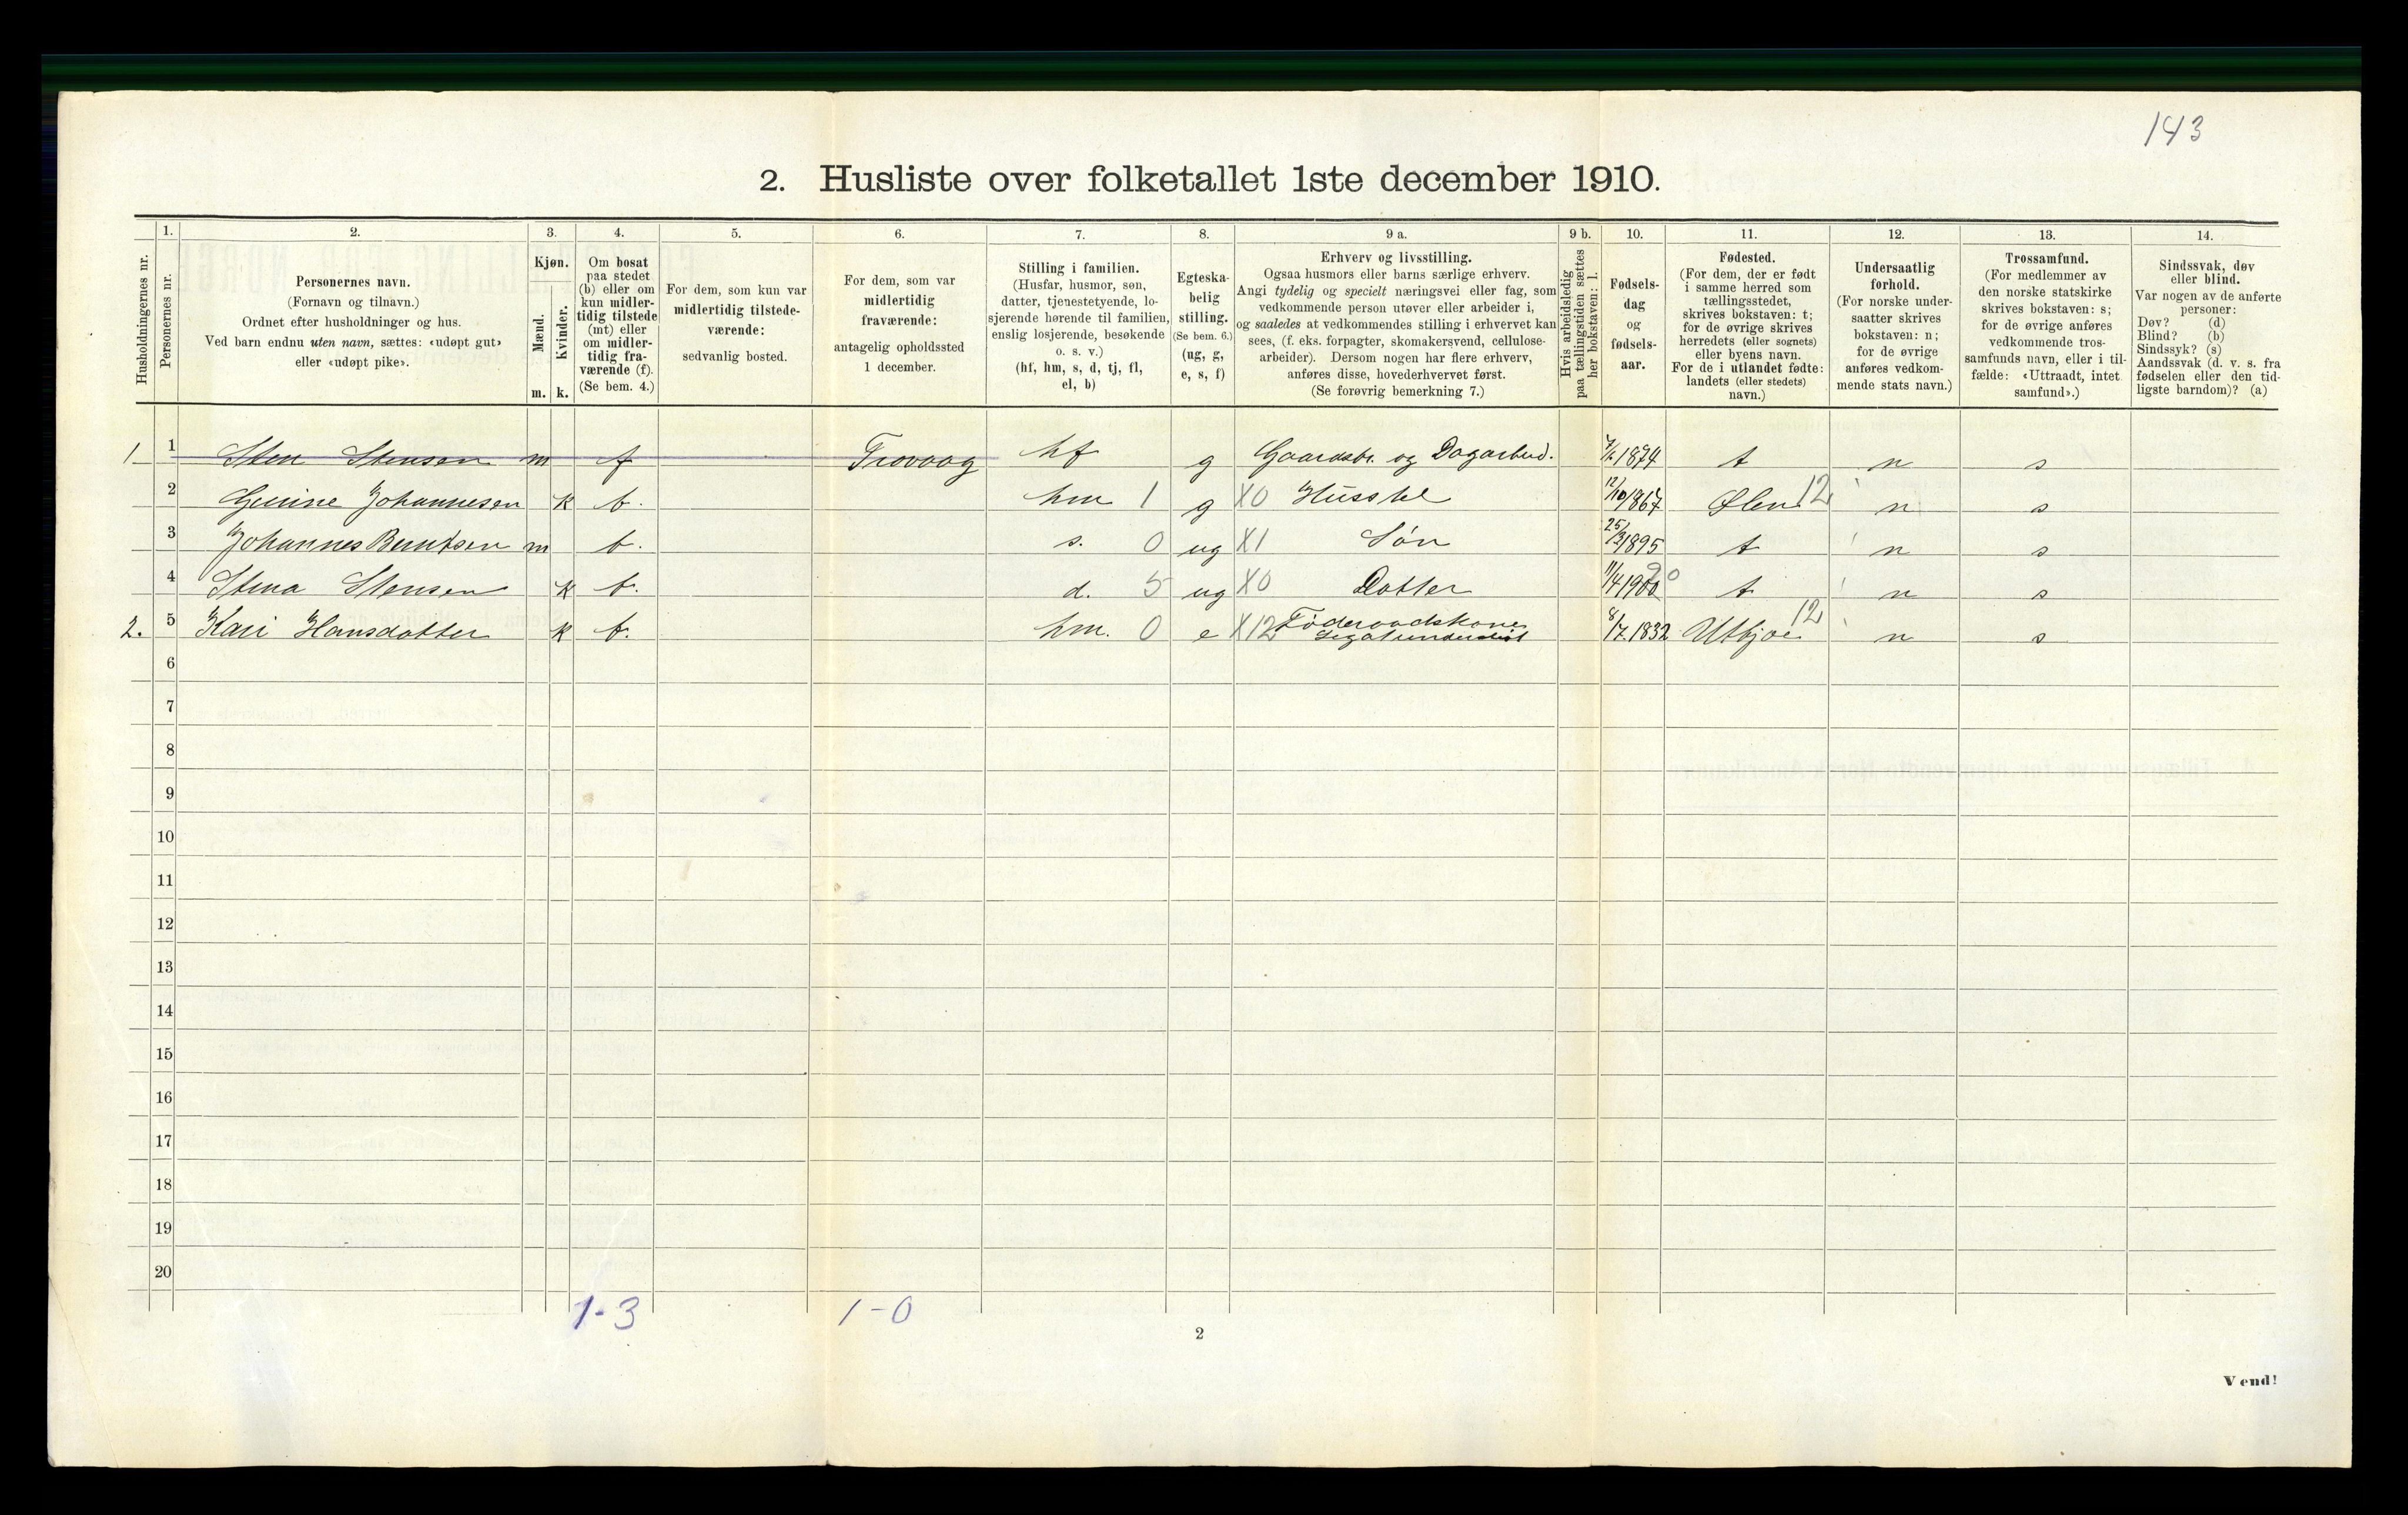 143
2. Husliste over folketallet 1ste december 1910.
Husholdningernes nr.
1.
Personernes nr.
2.
Personernes navn.
(Fornavn og tilnavn.)
Ordnet efter husholdninger og hus.
Ved barn endnu uten navn, sættes: «udøpt gut»
eller «udøpt pike».
3.
Kjøn.
Mænd.
Kvinder.
m. k.
4.
Om bosat
paa stedet
(b) eller om
kun midler-
tidig tilstede
(mt) eller
om midler-
tidig fra-
værende (f).
(Se bem. 4.)
5.
For dem, som kun var
midlertidig tilstede-
værende:
sedvanlig bosted.
6.
For dem, som var
midlertidig
fraværende:
antagelig opholdssted
1 december.
7.
Stilling i familien.
(Husfar, husmor, søn,
datter, tjenestetyende, lo-
sjerende hørende til familien,
enslig losjerende, besøkende
o. s. v.)
(hf, hm, s, d, tj, fl,
el, b)
8.
Egteska-
belig
stilling.
(Se bem. 6.)
(ug, g,
e, s, f)
9 a.
Erhverv og livsstilling.
Ogsaa husmors eller barns særlige erhverv.
Angi tydelig og specielt næringsvei eller fag, som
vedkommende person utøver eller arbeider i,
og saaledes at vedkommendes stilling i erhvervet kan
sees, (f. eks. forpagter, skomakersvend, cellulose-
arbeider). Dersom nogen har flere erhverv,
anføres disse, hovederhvervet først.
(Se forøvrig bemerkning 7.)
9 b.
Hvis arbeidsledig
paa tællingstiden sættes
her bokstaven: l.
10.
Fødsels-
dag
og
fødsels-
aar.
11.
Fødested.
(For dem, der er født
i samme herred som
tællingsstedet,
skrives bokstaven: t;
for de øvrige skrives
herredets (eller sognets)
eller byens navn.
For de i utlandet fødte:
landets (eller stedets)
navn.)
12.
Undersaatlig
forhold.
(For norske under-
saatter skrives
bokstaven: n;
for de øvrige
anføres vedkom-
mende stats navn.)
13.
Trossamfund.
(For medlemmer av
den norske statskirke
skrives bokstaven: s;
for de øvrige anføres
vedkommende tros-
samfunds navn, eller i til-
fælde: «Uttraadt, intet
samfund».)
14.
Sindssvak, døv
eller blind.
Var nogen av de anførte
personer:
Døv? (d)
Blind? (b)
Sindssyk? (s)
Aandssvak (d. v. s. fra
fødselen eller den tid-
ligste barndom)? (a)
1 1 Sten Stensen m f Trovaag hf g Gaardsbr. og Dagarbeid. 1874 t n s
2 Gurine Johannesen k b. hm 1 g X0 Husstel 12/10 1867 Ølen 12 n s
3 Johannes Berntsen m b. s. 0 ug X1 Søn 1895 t n s
4 Stina Stensen k b. d. 5 ug X0 Datter 11/4 1900 0 t n s
2. 5 Kari Hansdatter k b. hm. 0 e X12 Føderaadskone 8/7 1832 Utbjoe 12 n s
Legatunderstøt
6
7
8
9
10
11
12
13
14
15
16
17
18
19
20
1-3 1-0
2
Vend!